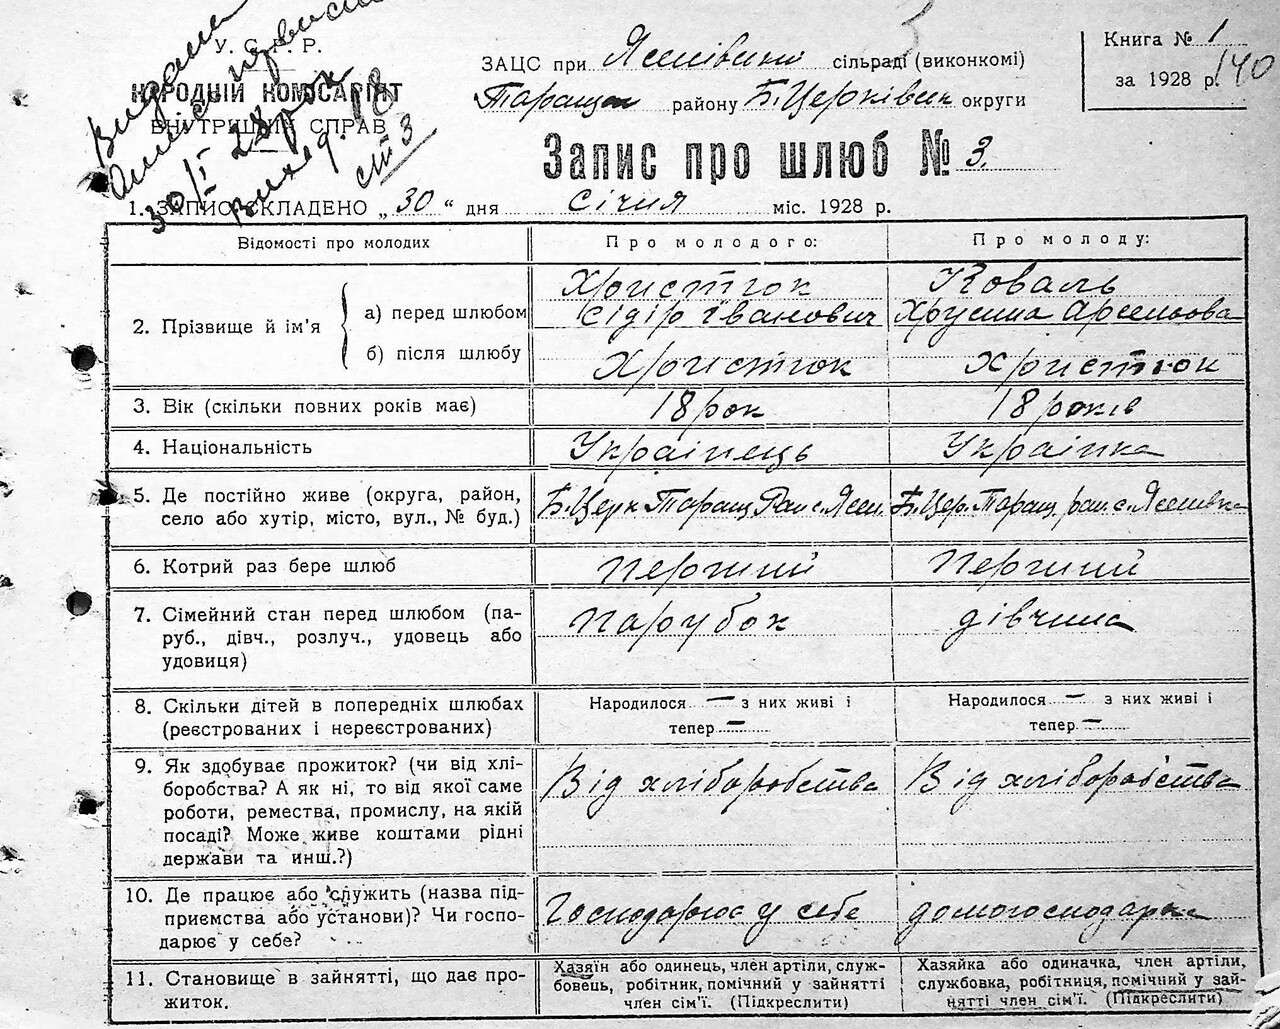 Видана
виписка
30/I 28 рок
вих 9. 18
ст 3
У. С. Р. Р.
НАРОДНІЙ КОМІСАРІЯТ
ВНУТРІШНІХ СПРАВ
ЗАЦС при Ясенівській сільраді (виконкомі)
Таращан району Б. Церківськ округи
Книга № 1
за 1928 р. 140
Запис про шлюб № 3.
1. ЗАПИС СКЛАДЕНО „30“ дня січня міс. 1928 р.
Відомості про молодих Про молодого: Про молоду:
2. Прізвище й ім'я
а) перед шлюбом Христюк Коваль
Сідір Іванович Хрусина Арсеньова
б) після шлюбу Христюк Христюк
3. Вік (скільки повних років має) 18 рок 18 років
4. Національність Українець Українка
5. Де постійно живе (округа, район, Б. Церк Таращ Рай с. Ясен. Б. Цер. Таращ рай. с. Ясенівка
село або хутір, місто, вул., № буд.)
6. Котрий раз бере шлюб Перший Перший
7. Сімейний стан перед шлюбом (па- Парубок дівчина
руб., дівч., розлуч., удовець або
удовиця)
8. Скільки дітей в попередніх шлюбах Народилося — з них живі і Народилося — з них живі і
(реєстрованих і нереєстрованих) тепер — тепер —
9. Як здобуває прожиток? (чи від хлі- Від хліборобства Від хліборобства
боробства? А як ні, то від якої саме
роботи, ремества, промислу, на якій
посаді? Може живе коштами рідні
держави та инш.?)
10. Де працює або служить (назва під- Господарює у себе домогосподарка
приємства або установи)? Чи госпо-
дарює у себе?
11. Становище в зайнятті, що дає про- Хазяїн або одинець, член артіли, служ- Хазяйка або одиначка, член артіли,
житок. бовець, робітник, помічний у зайнятті службовка, робітниця, помічний у зай-
член сім'ї. (Підкреслити) нятті член сім'ї. (Підкреслити)